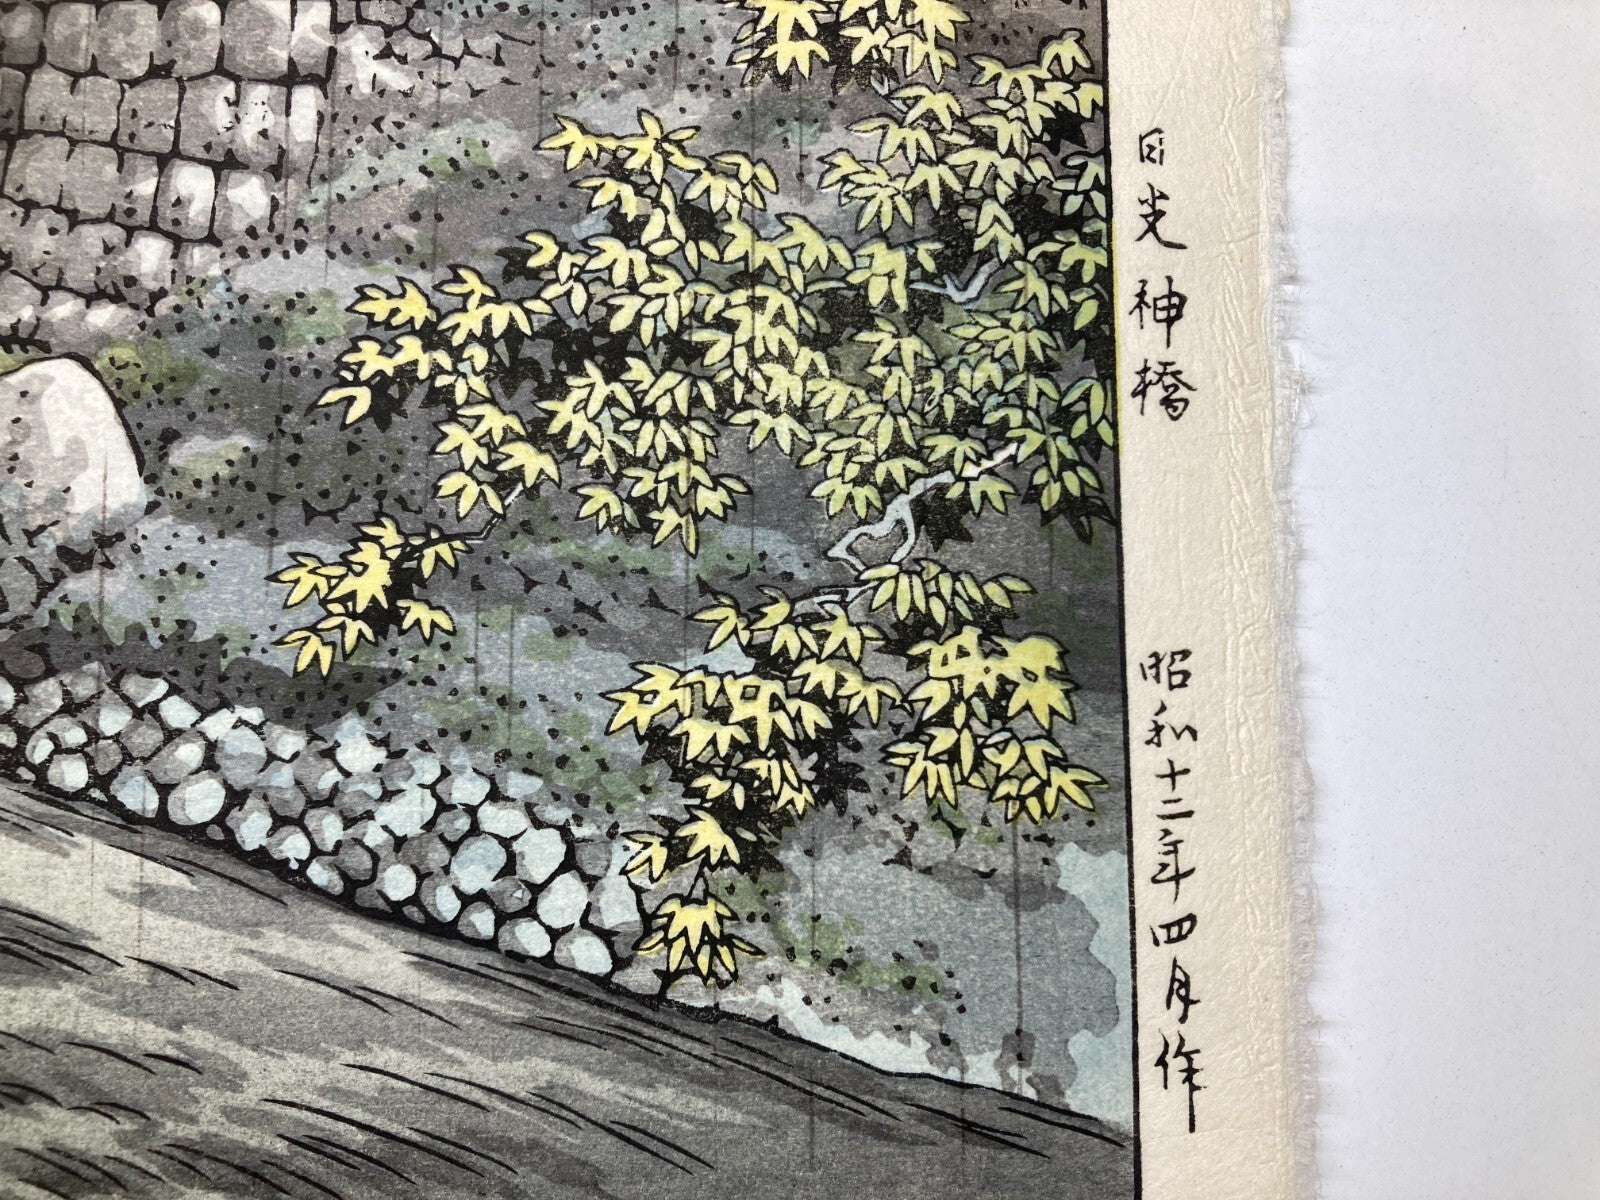 日光神橋
昭和十二年四月作